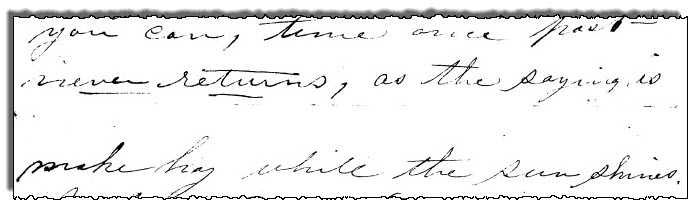 you can, time once past
never returns, as the saying is
make hay while the sun shines.